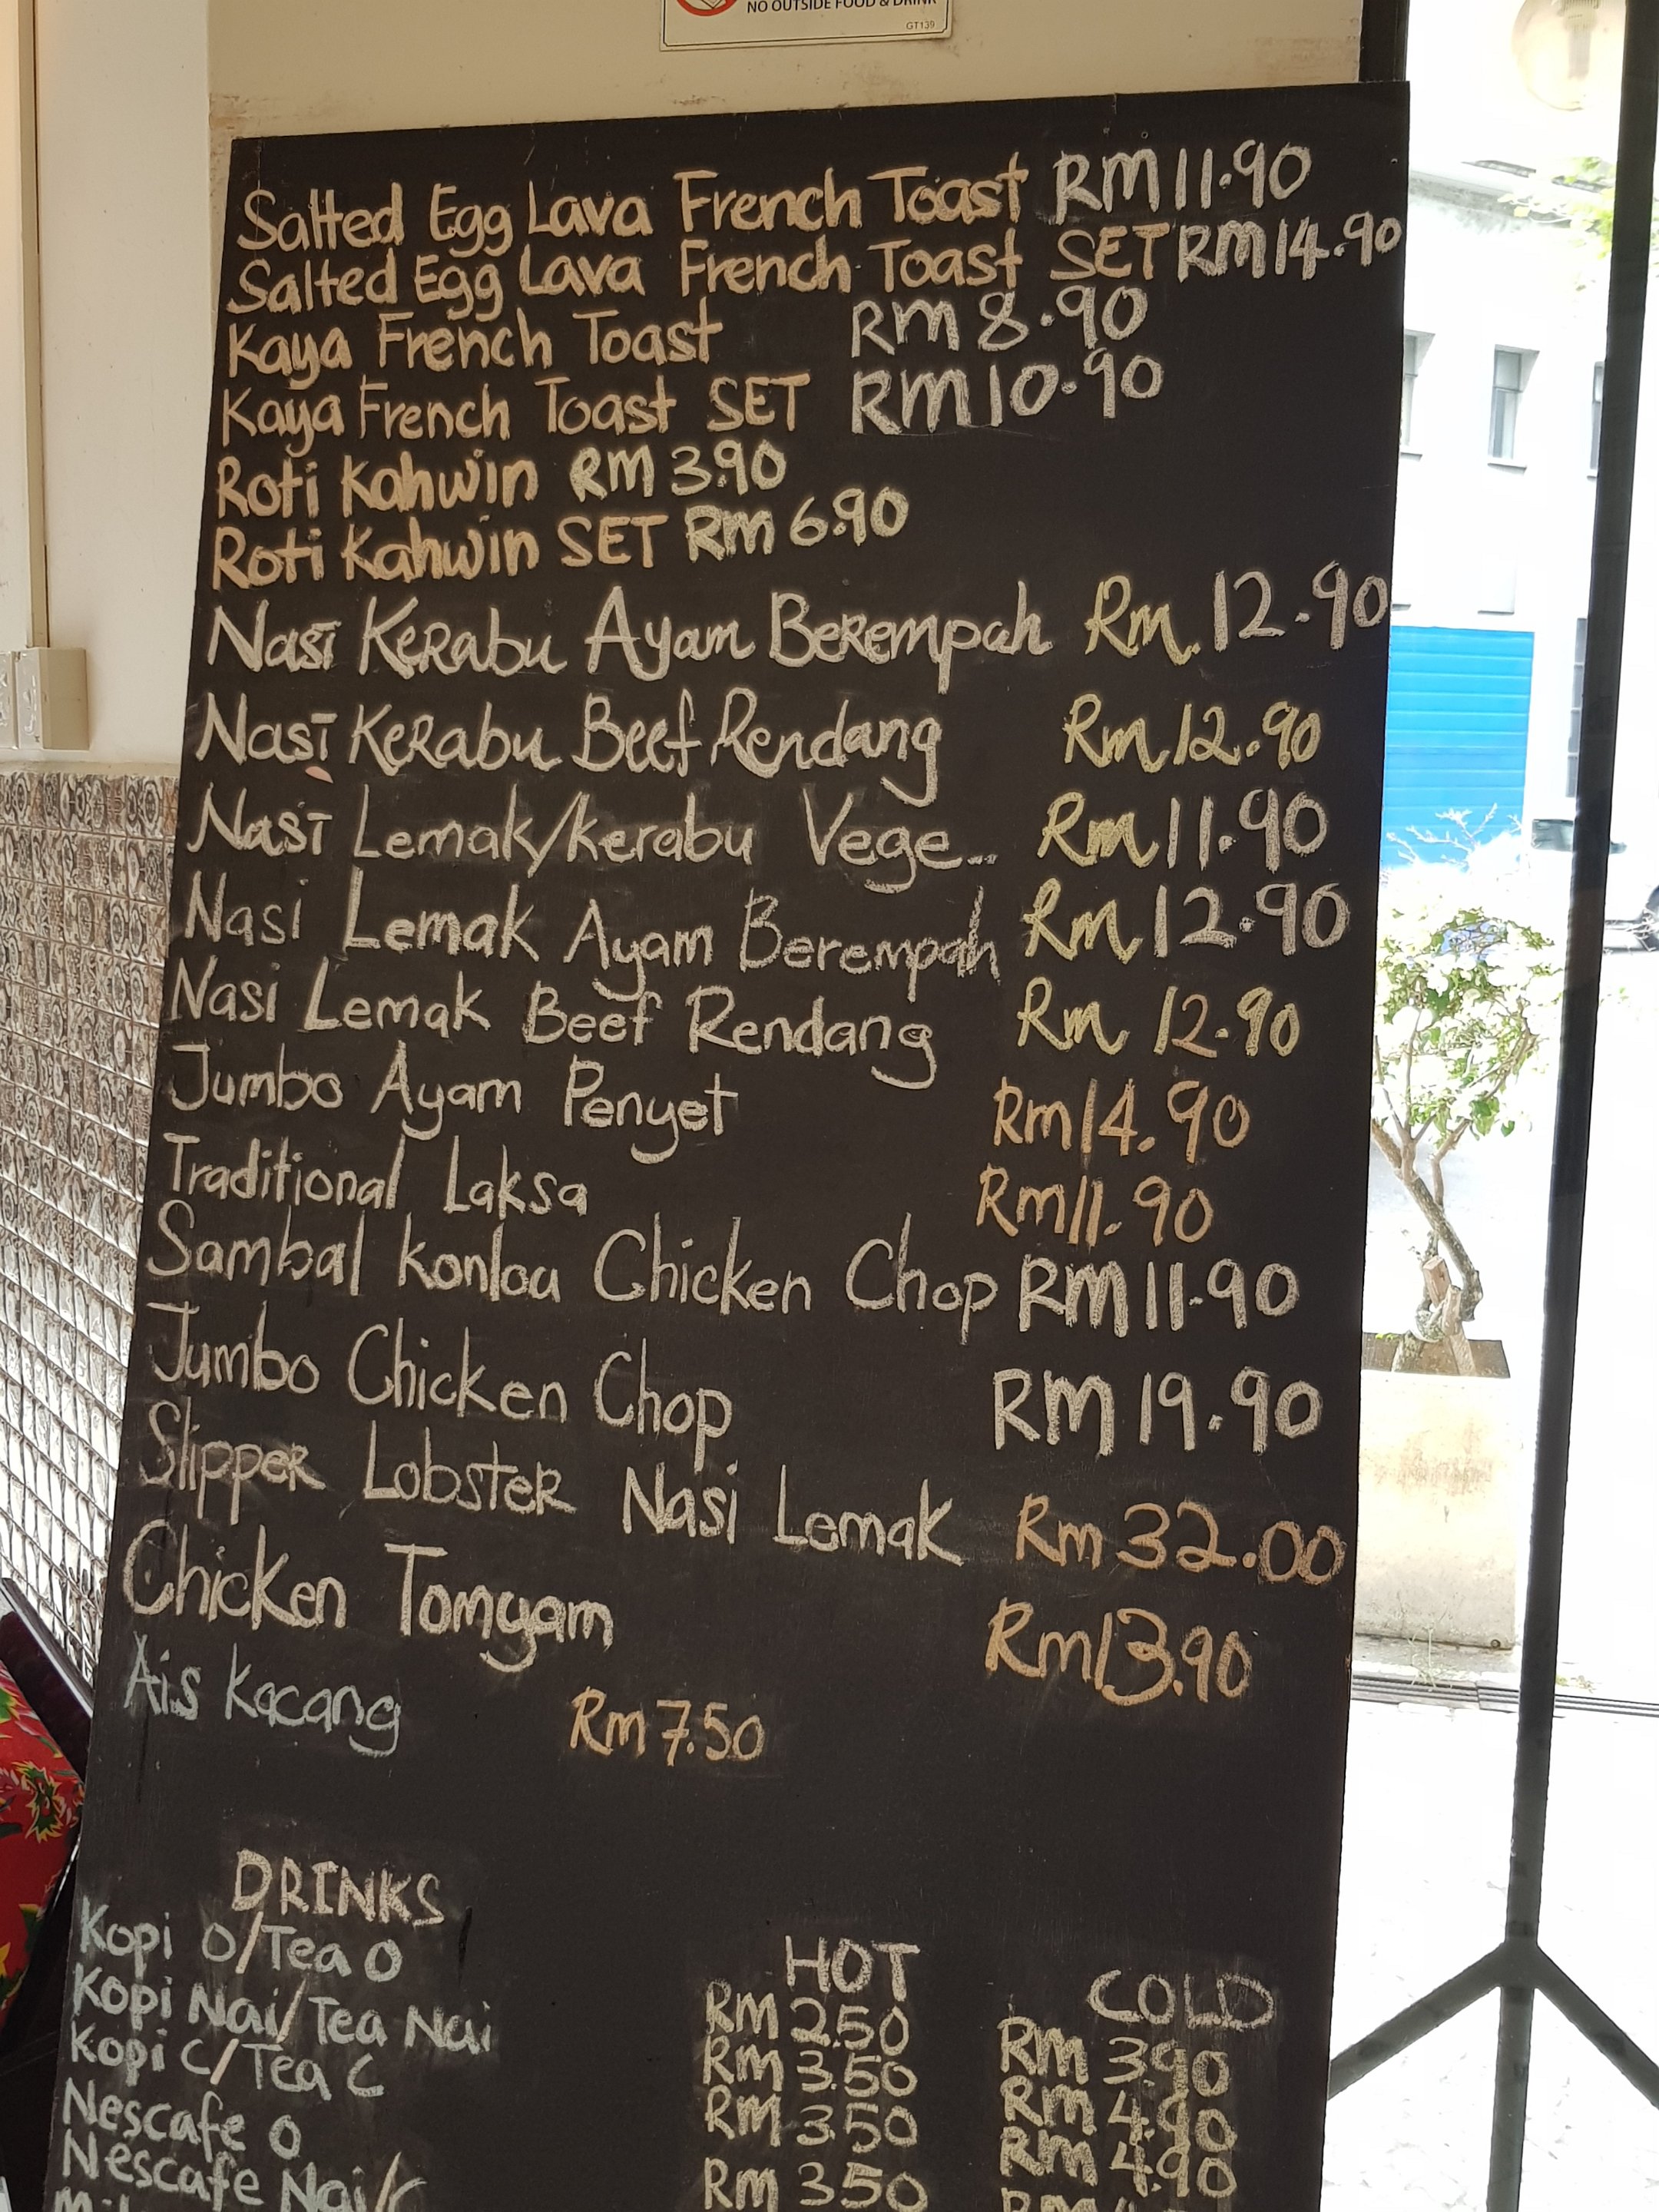 NO OUTSIDE FOOD & DRINK
GT139
Salted Egg Lava French Toast RM 11.90
Salted Egg Lava French Toast SET RM 14.90
Kaya French Toast RM 8.90
Kaya French Toast SET RM 10.90
Roti Kahwin RM 3.90
Roti Kahwin SET Rm 6.90
Nasi KeRabu Ayam BeRempah Rm. 12.90
Nasi KeRabu Beef Rendang Rm 12.90
Nasi Lemak/Kerabu Vege... Rm 11.90
Nasi Lemak Ayam Berempah Rm 12.90
Nasi Lemak Beef Rendang Rm 12.90
Jumbo Ayam Penyet Rm 14.90
Traditional Laksa Rm 11.90
Sambal Konloa Chicken Chop RM 11.90
Jumbo Chicken Chop RM 19.90
SlippeR LobsteR Nasi Lemak Rm 32.00
Chicken Tomyam Rm 13.90
Ais Kacang Rm 7.50
DRINKS HOT COLD
Kopi O/Tea O Rm 2.50 Rm 3.90
Kopi Nai/Tea Nai Rm 3.50 Rm 4.90
Kopi C/Tea C Rm 3.50 Rm 4.90
Nescafe O Rm 3.50
Nescafe Nai/C